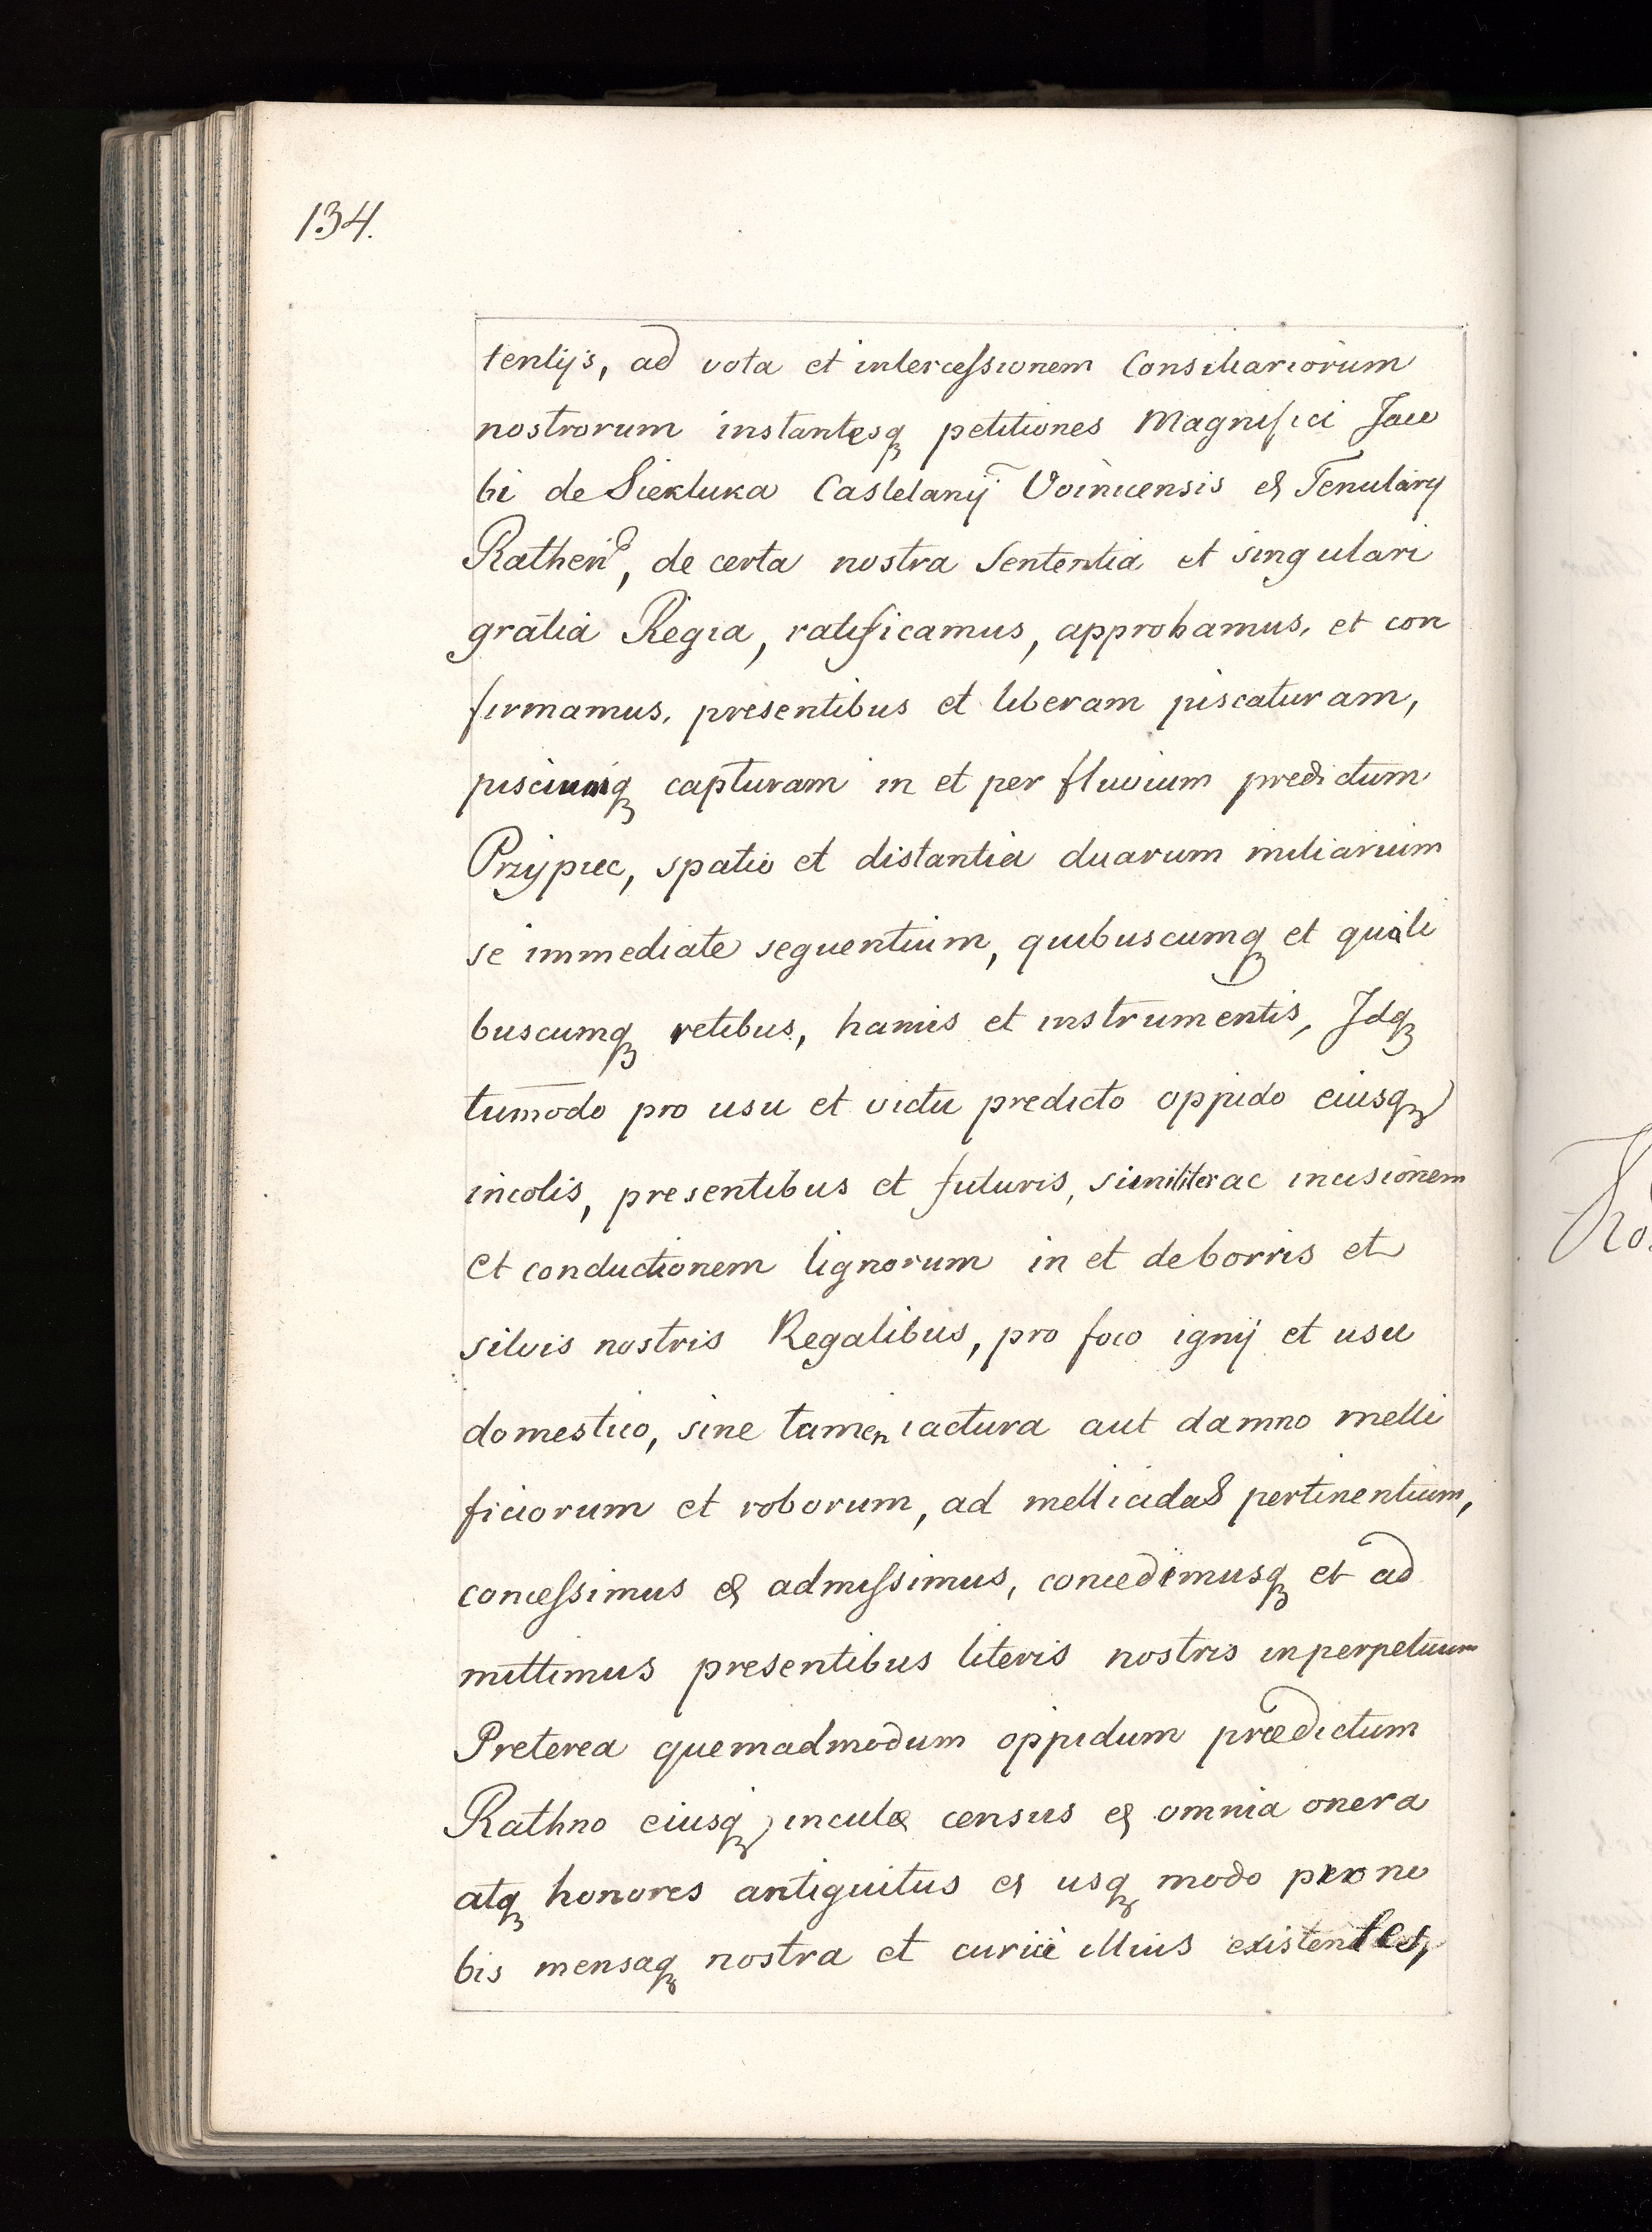 134.
tentijs, ad vota et intercessionem Consiliariorum
nostrorum instantesq petitiones Magnifici Jaco
bi de Siekluka Castelanij Voinicensis et Tenutarij
Rathen, de certa nostra Sententia et singulari
gratia Regia, ratificamus, approbamus, et con
firmamus, presentibus et liberam piscaturam,
pisciumq capturam in et per fluvium predictum
Przypiec, spatio et distantia duarum miliarium
se immediate sequentium, quibuscumq et quali
buscumq retibus, hamis et instrumentis, Jdq
tumodo pro usu et victu predicto oppido eiusq
incolis, presentibus et futuris, similiter ac incisionem
et conductionem lignorum in et de borris et
silvis nostris Regalibus, pro foco ignij et usu
domestico, sine tamen iactura aut damno melli
ficiorum et roborum, ad mellicidas pertinentium,
concessimus et admissimus, concedimusq et ad
mittimus presentibus literis nostris in perpetuum
Preterea quemadmodum oppidum prædictum
Rathno eiusq inculæ census et omnia onera
atq honores antiquitus et usq modo pro no
bis mensaq nostra et curiæ illius existentes,